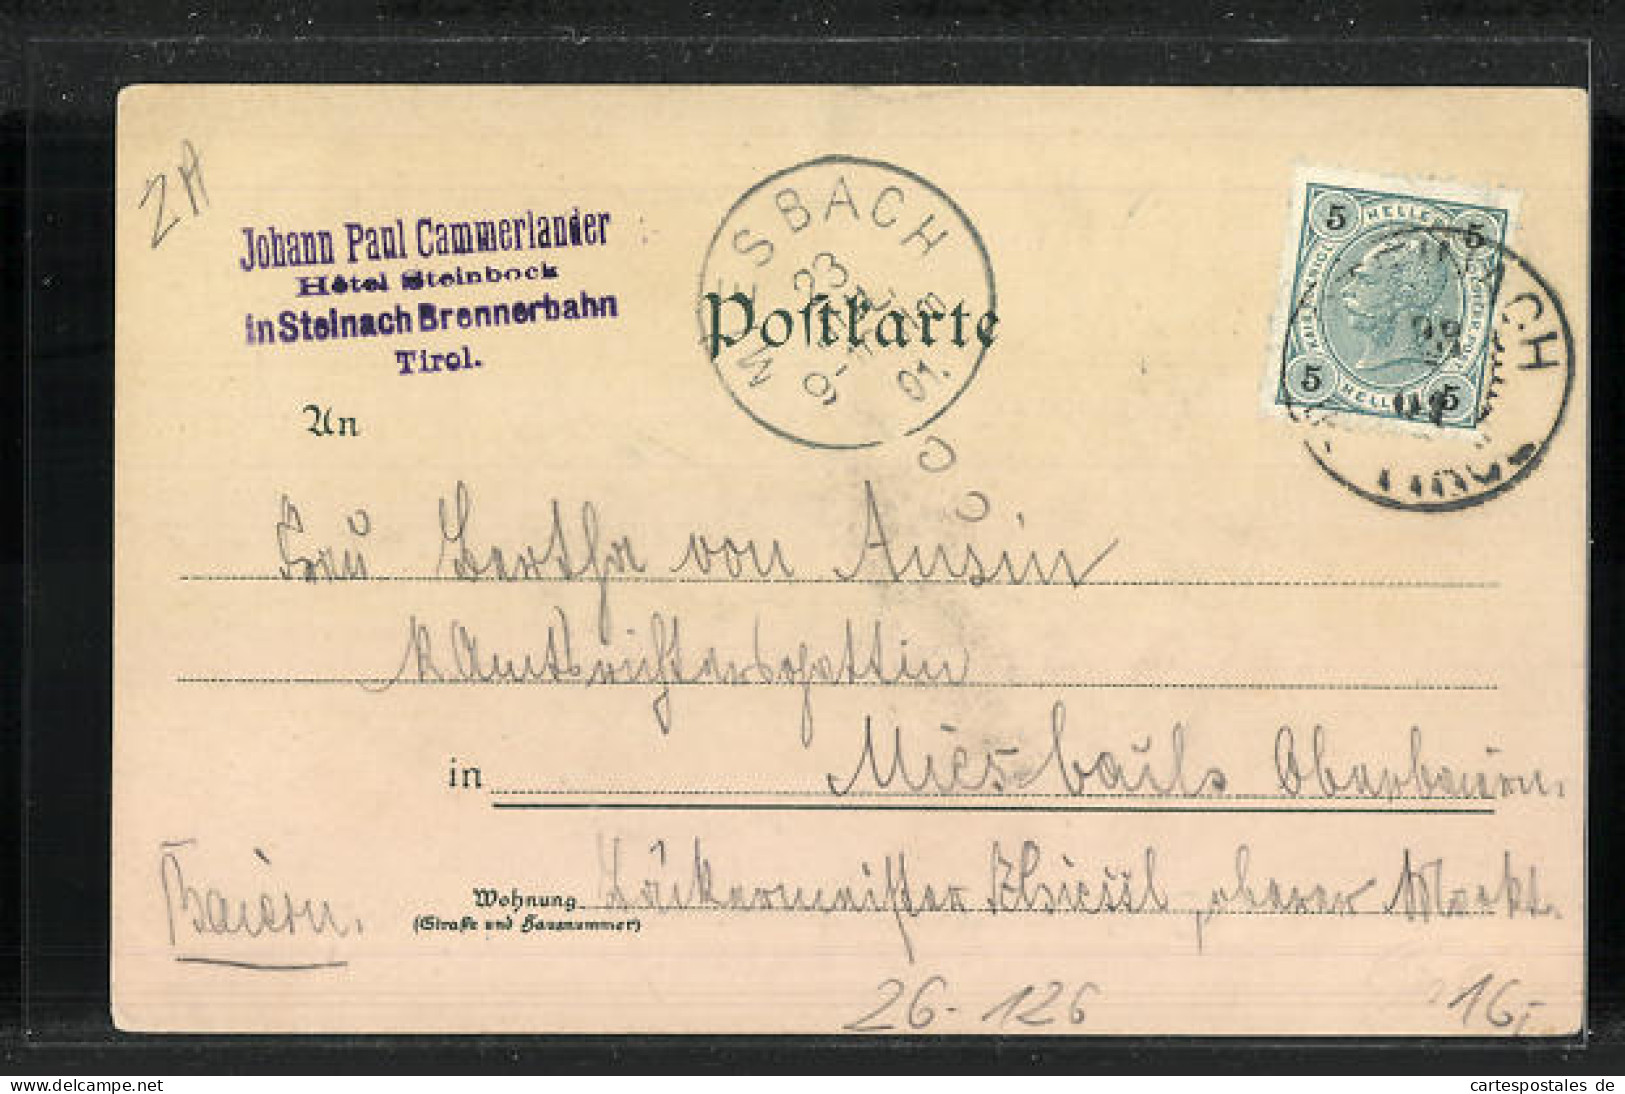 ZA
Johann Paul Cammerlander
Hôtel Steinbock
in Steinach Brennerbahn
Tirol.
MIESBACH
23
9-
01.
Postkarte
5 HELLER 5
5 HELLER 5
An
Frau Bertha von Ausin
k Amtsrichtersgattin
in Miesbach Oberbayern.
Baiern.
Wohnung Bäckermeister oberer Markt.
(Straße und Hausnummer)
26-126
16,-
cartespostales de